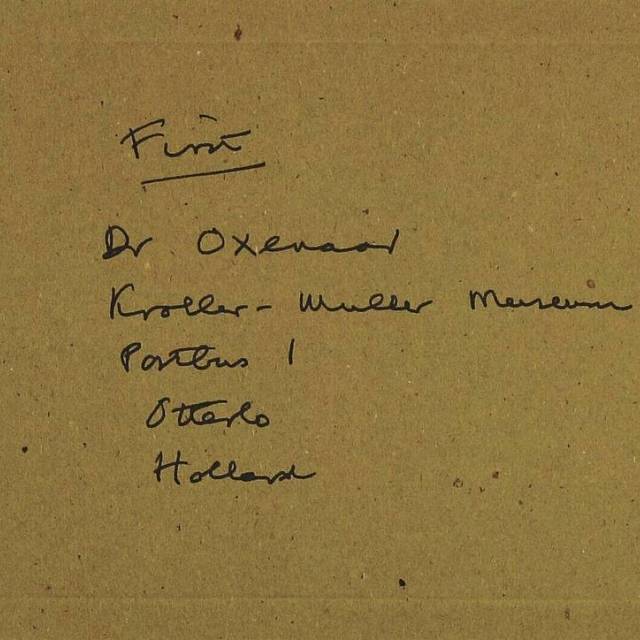 First
Dr Oxenaar
Kroller-Muller Museum
Postbus 1
Otterlo
Holland